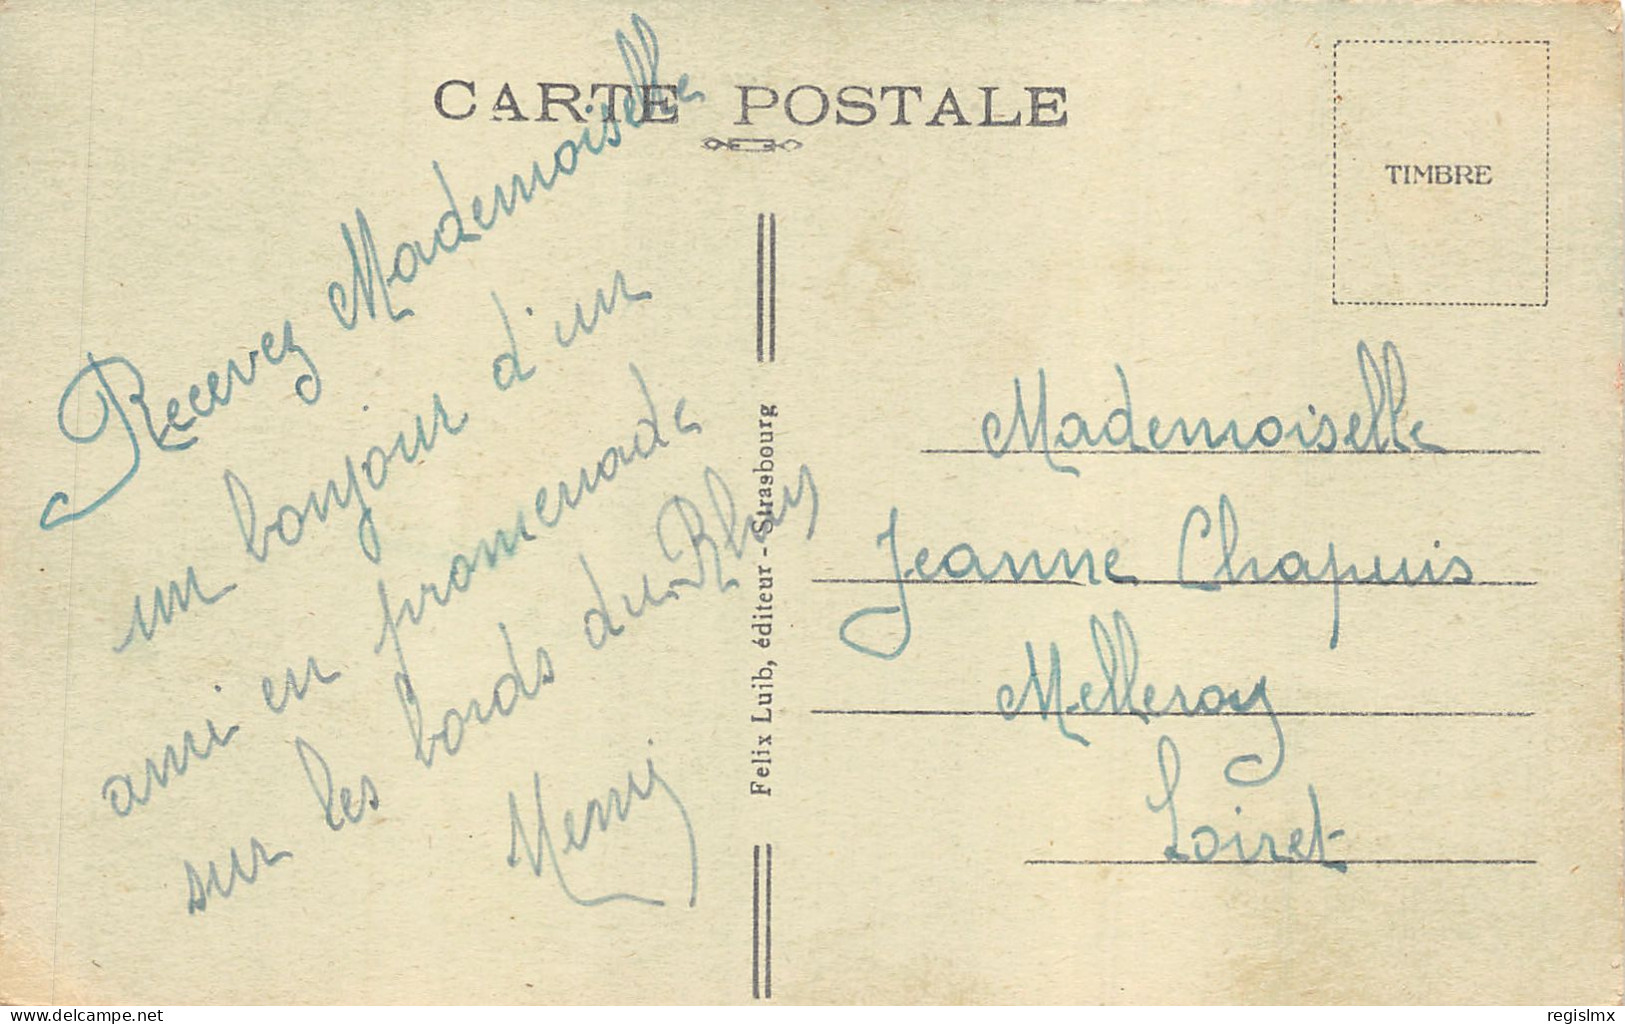 CARTE POSTALE
TIMBRE
Recevez Mademoiselle
un bonjour d'un
ami en promenade
sur les bords du Rhin
Henri
Felix Luib, éditeur - Strasbourg
Mademoiselle
Jeanne Chapuis
Melleroy
Loiret
delcampe.net
regislmx